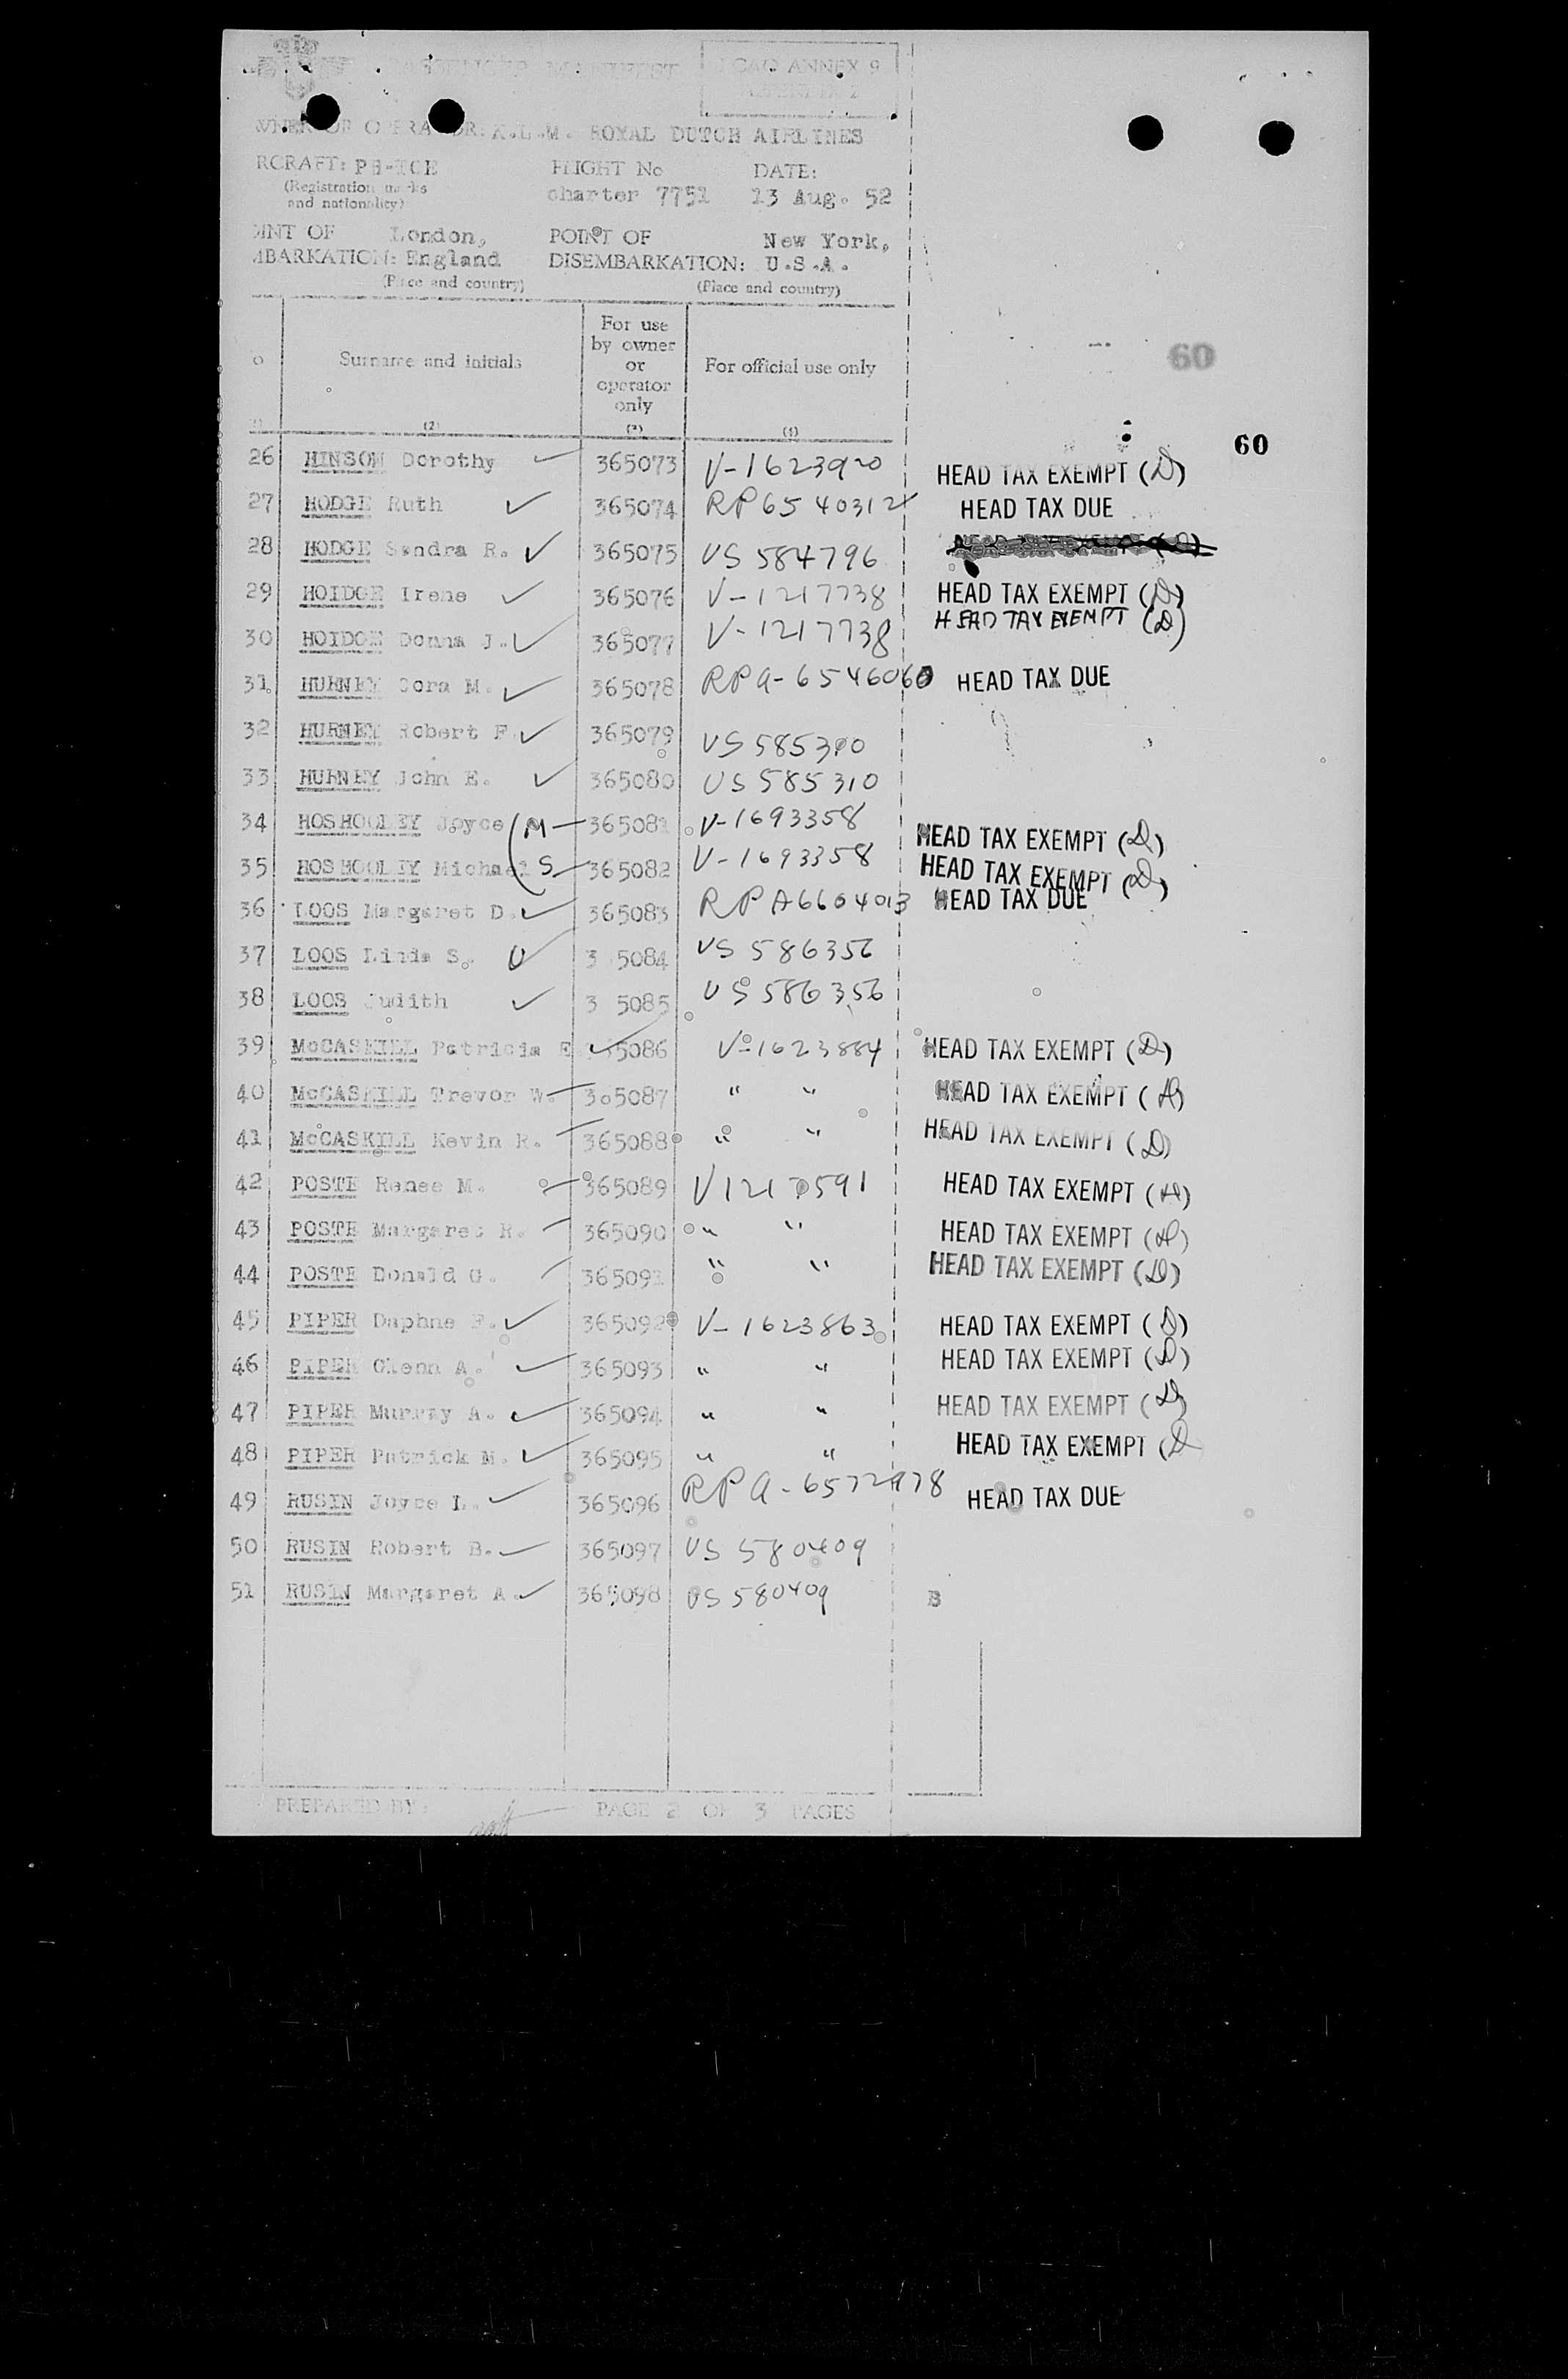 PASSENGER MANIFEST ICAO ANNEX 9
WNER OR OPERATOR: K.L.M. ROYAL DUTCH AIRLINES
RCRAFT: PH-TCE FLIGHT No DATE:
(Registration marks and nationality) charter 7751 13 Aug. 52
INT OF London, POINT OF New York,
MBARKATION: England DISEMBARKATION: U.S.A.
(Place and country) (Place and country)
o Surname and initials For use by owner or operator only For official use only
60
(2) (3) (4)
60
26 HINSON Dorothy 365073 V-1623920 HEAD TAX EXEMPT (D)
27 HODGE Ruth 365074 RP6540312 HEAD TAX DUE
28 HODGE Sandra R. 365075 US 584796
29 HOIDGE Irene 365076 V-1217738 HEAD TAX EXEMPT (D)
30 HOIDGE Donna J. 365077 V-1217738 HEAD TAX EXEMPT (D)
31 HURNEY Cora M. 365078 RPA-6546060 HEAD TAX DUE
32 HURNEY Robert F. 365079 US 585310
33 HURNEY John E. 365080 US 585310
34 HOSHOOLEY Joyce M 365081 V-1693358 HEAD TAX EXEMPT (D)
35 HOSHOOLEY Michael S 365082 V-1693358 HEAD TAX EXEMPT (D)
36 LOOS Margaret D. 365083 RPA6604013 HEAD TAX DUE
37 LOOS Linda S. 3 5084 US 586356
38 LOOS Judith 3 5085 US 586356
39 McCASKILL Patricia E. 365086 V-1623884 HEAD TAX EXEMPT (D)
40 McCASKILL Trevor W. 365087 " " HEAD TAX EXEMPT (D)
41 McCASKILL Kevin R. 365088 " " HEAD TAX EXEMPT (D)
42 POSTE Renee M. 365089 V1217591 HEAD TAX EXEMPT (D)
43 POSTE Margaret R. 365090 " " HEAD TAX EXEMPT (D)
44 POSTE Donald G. 365091 " " HEAD TAX EXEMPT (D)
45 PIPER Daphne F. 365092 V-1623863 HEAD TAX EXEMPT (D)
46 PIPER Glenn A. 365093 " " HEAD TAX EXEMPT (D)
47 PIPER Murray A. 365094 " " HEAD TAX EXEMPT (D)
48 PIPER Patrick M. 365095 " " HEAD TAX EXEMPT (D
49 RUSIN Joyce L. 365096 RPA-6572978 HEAD TAX DUE
50 RUSIN Robert B. 365097 US 580409
51 RUSIN Margaret A. 365098 US 580409 B
PREPARED BY: PAGE 2 OF 3 PAGES